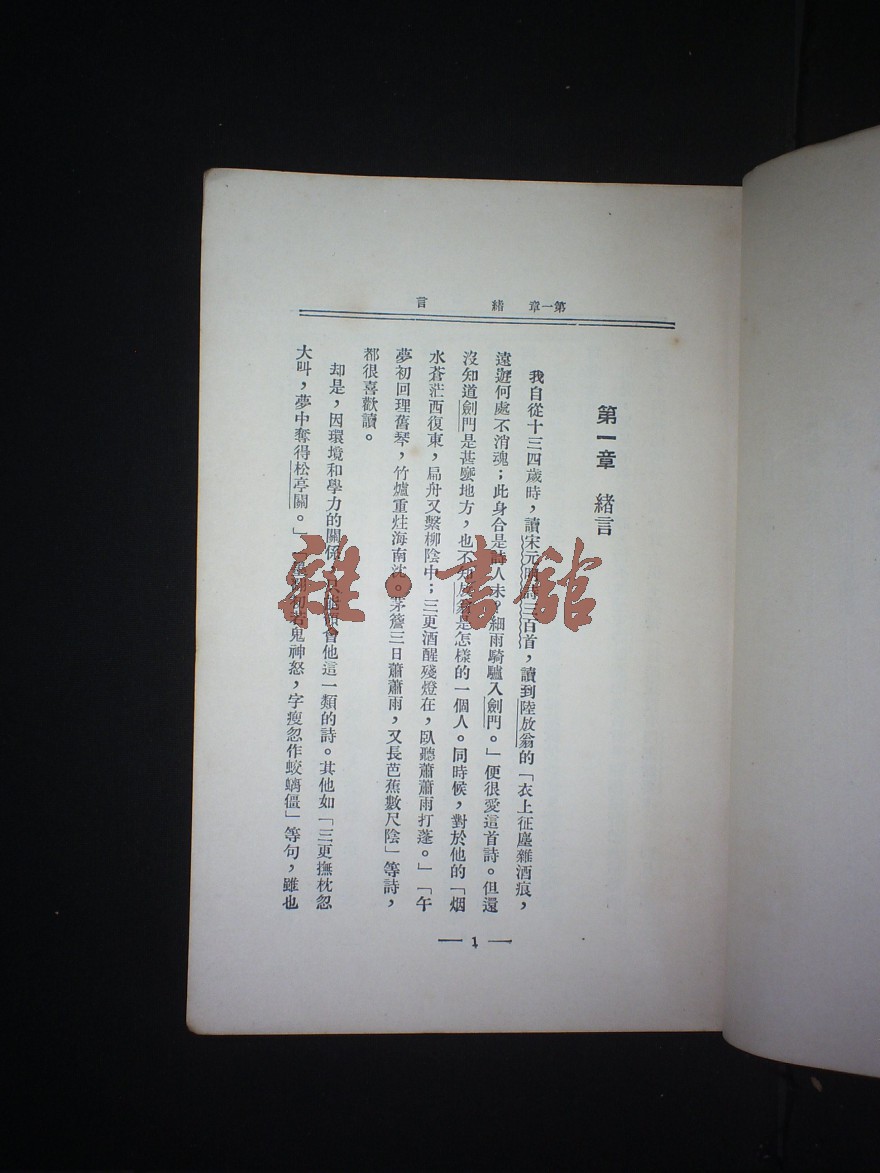 第一章 緒 言
第一章 緒言
我自從十三四歲時,讀宋元明詩三百首,讀到陸放翁的「衣上征塵雜酒痕,
遠遊何處不消魂;此身合是詩人未?細雨騎驢入劍門。」便很愛這首詩。但還
沒知道劍門是甚麼地方,也不知放翁是怎樣的一個人。同時候,對於他的「烟
水蒼茫西復東,扁舟又繫柳陰中;三更酒醒殘燈在,臥聽蕭蕭雨打蓬。」「午
夢初回理舊琴,竹爐重炷海南沈。茅簷三日蕭蕭雨,又長芭蕉數尺陰」等詩,
都很喜歡讀。
却是,因環境和學力的關係,只能領會他這一類的詩。其他如「三更撫枕忽
大叫,夢中奪得松亭關。」「墨翻初若鬼神怒,字瘦忽作蛟螭僵」等句,雖也
— 1 —
雜·書館